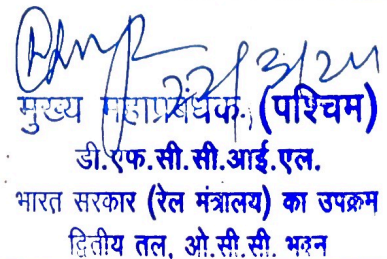 मुख्य महाप्रबंधक (पश्चिम)
डी.एफ.सी.सी.आई.एल.
भारत सरकार (रेल मंत्रालय) का उपक्रम
द्वितीय तल, ओ.सी.सी. भवन